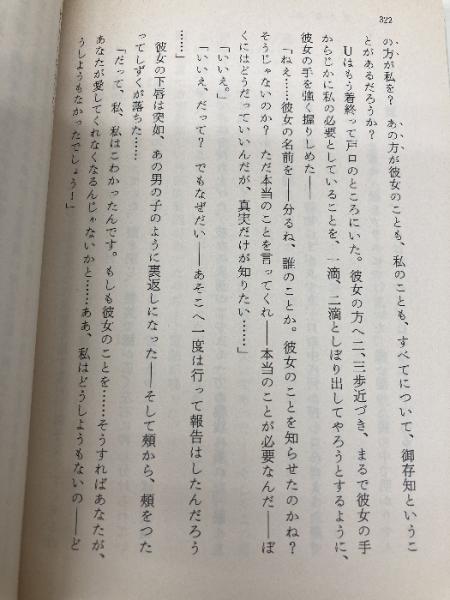 322
の方が私を？　あの方が彼女のことも、私のことも、すべてについて、御存知というこ
とがあるだろうか？
　Uはもう着終って戸口のところにいた。彼女の方へ二、三歩近づき、まるで彼女の手
からじかに私の必要としていることを、一滴、二滴としぼり出してやろうとするように、
彼女の手を強く握りしめた——
「ねえ……彼女の名前を——分るね、誰のことか。彼女のことを知らせたのかね？
そうじゃないのか？　ただ本当のことを言ってくれ——本当のことが必要なんだ——ぼ
くにはどうだっていいんだが、真実だけが知りたい……」
「いいえ。」
「いいえ、だって？　でもなぜだい——あそこへ一度は行って報告はしたんだろう
……」
　彼女の下唇は突如、あの男の子のように裏返しになった——そして頰から、頰をつた
ってしずくが落ちた……
「だって、私、私はこわかったんです。もしも彼女のことを………そうすればあなたが、
あなたが愛してくれなくなるんじゃないかと……ああ、私はどうしようもないの——ど
うしようもなかったでしょう！」